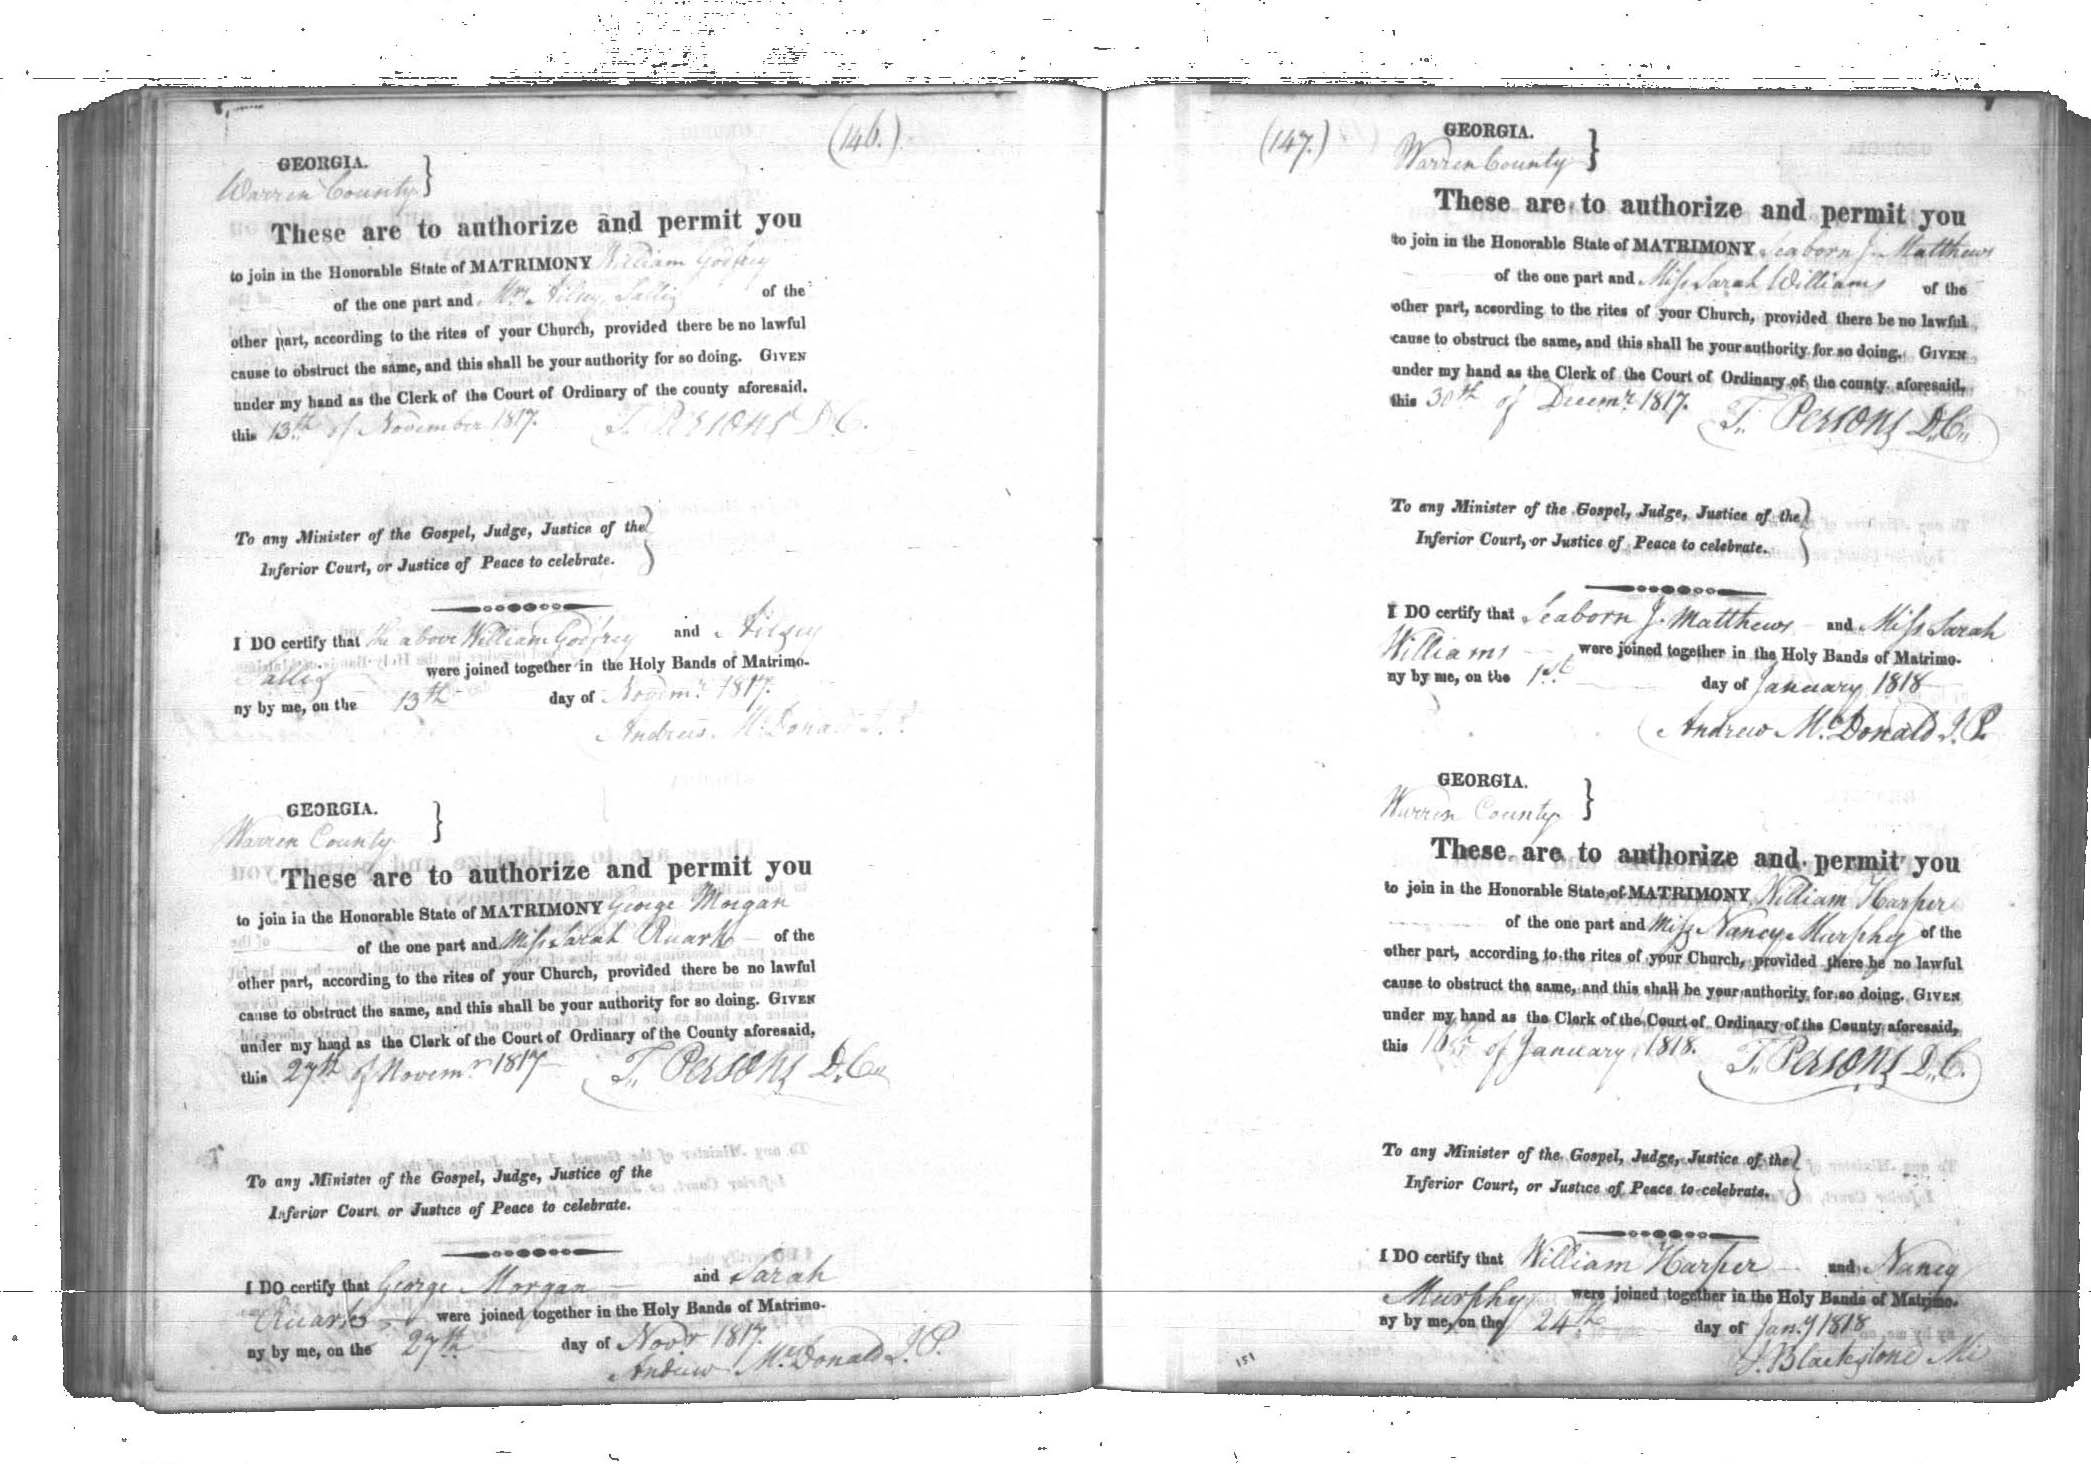 (146.)
GEORGIA. }
Warren County
These are to authorize and permit you
to join in the Honorable State of MATRIMONY William Godfrey
of the one part and Mrs Ailsey Sallis of the
other part, according to the rites of your Church, provided there be no lawful
cause to obstruct the same, and this shall be your authority for so doing. GIVEN
under my hand as the Clerk of the Court of Ordinary of the county aforesaid,
this 13th of November 1817. T. Persons D.C.
To any Minister of the Gospel, Judge, Justice of the }
Inferior Court, or Justice of Peace to celebrate.
I DO certify that the above William Godfrey and Ailsey
Sallis were joined together in the Holy Bands of Matrimo-
ny by me, on the 13th day of Novemr 1817.
Andrew McDonald J.P.
GEORGIA. }
Warren County
These are to authorize and permit you
to join in the Honorable State of MATRIMONY George Morgan
of the one part and Miss Sarah Ruark of the
other part, according to the rites of your Church, provided there be no lawful
cause to obstruct the same, and this shall be your authority for so doing. GIVEN
under my hand as the Clerk of the Court of Ordinary of the County aforesaid,
this 27th of Novemr 1817 T. Persons D.C.
To any Minister of the Gospel, Judge, Justice of the
Inferior Court or Justice of Peace to celebrate.
I DO certify that George Morgan and Sarah
Ruark were joined together in the Holy Bands of Matrimo-
ny by me, on the 27th day of Novr 1817.
Andrew McDonald J.P.
(147.)
GEORGIA. }
Warren County
These are to authorize and permit you
to join in the Honorable State of MATRIMONY Seaborn J. Matthews
of the one part and Miss Sarah Williams of the
other part, according to the rites of your Church, provided there be no lawful
cause to obstruct the same, and this shall be your authority for so doing. GIVEN
under my hand as the Clerk of the Court of Ordinary of the county aforesaid,
this 30th of Decemr 1817. T. Persons D.C.
To any Minister of the Gospel, Judge, Justice of the }
Inferior Court, or Justice of Peace to celebrate.
I DO certify that Seaborn J. Matthews and Miss Sarah
Williams were joined together in the Holy Bands of Matrimo-
ny by me, on the 1st day of January 1818
Andrew McDonald J.P.
GEORGIA. }
Warren County
These are to authorize and permit you
to join in the Honorable State of MATRIMONY William Harper
of the one part and Miss Nancy Murphy of the
other part, according to the rites of your Church, provided there be no lawful
cause to obstruct the same, and this shall be your authority for so doing. GIVEN
under my hand as the Clerk of the Court of Ordinary of the County aforesaid,
this 16th of January 1818. T. Persons D.C.
To any Minister of the Gospel, Judge, Justice of the }
Inferior Court, or Justice of Peace to celebrate.
I DO certify that William Harper and Nancy
Murphy were joined together in the Holy Bands of Matrimo-
ny by me, on the 24th day of Jany 1818
J. Blackstone Mi
151